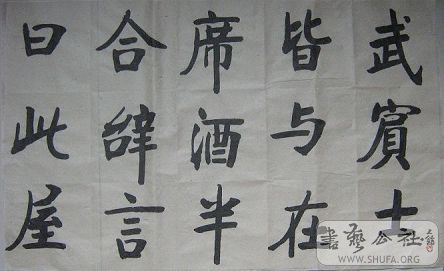 武賓士
皆与在
席酒半
合辞言
曰此屋
書藝公社
WWW.SHUFA.ORG